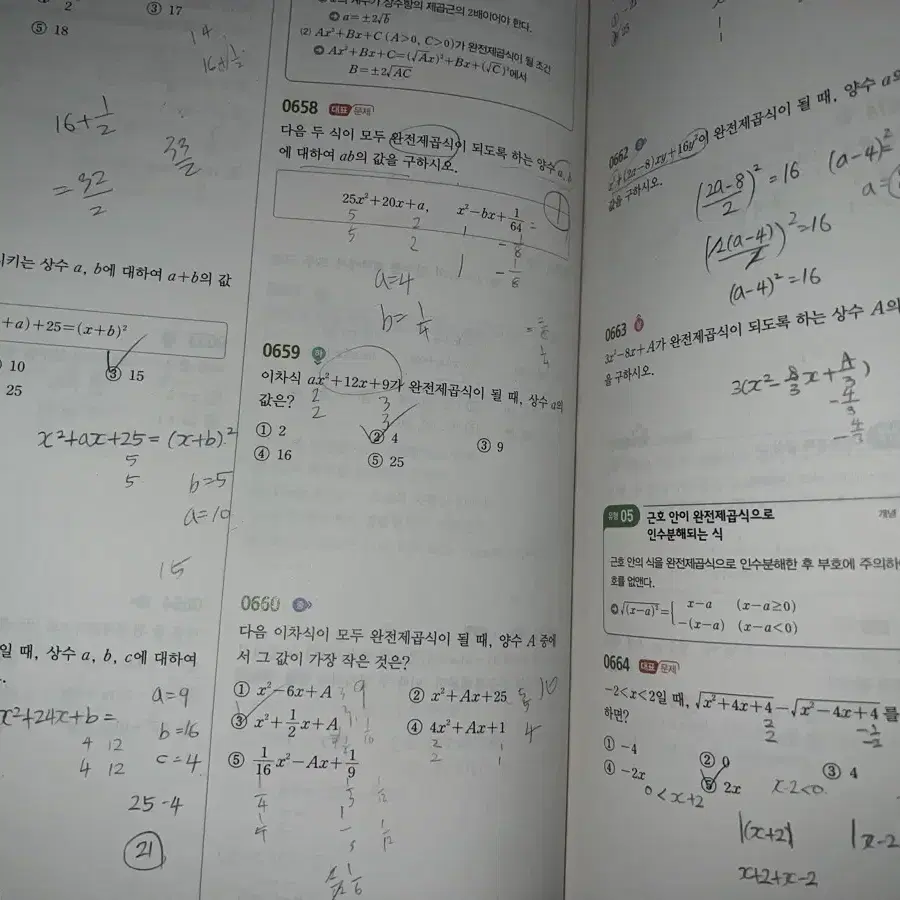 2
③ 17
⑤ 18
14
16+1/2
16+1/2
33/2
=32/2
시키는 상수 a, b에 대하여 a+b의 값
+a)+25=(x+b)²
10
③ 15
25
x²+ax+25=(x+b)²
5
5
b=5
a=10
15
일 때, 상수 a, b, c에 대하여
a=9
x²+24x+b=
b=16
4 12
4 12
c=4
25-4
21
상수항의 제곱근의 2배이어야 한다.
➲ a=±2√b
(2) Ax²+Bx+C (A>0, C>0)가 완전제곱식이 될 조건
➲ Ax²+Bx+C=(√Ax)²+Bx+(√C)²에서
B=±2√AC
0658 대표 문제
다음 두 식이 모두 완전제곱식이 되도록 하는 양수 a, b
에 대하여 ab의 값을 구하시오.
25x²+20x+a, x²-bx+1/64
5 2 1 -1/8
5 2 1 -1/8
a=4
b=1/4
0659 하
이차식 ax²+12x+9가 완전제곱식이 될 때, 상수 a의
값은?
2 3
2 3
① 2 ② 4 ③ 9
④ 16 ⑤ 25
0660 중
다음 이차식이 모두 완전제곱식이 될 때, 양수 A 중에
서 그 값이 가장 작은 것은?
① x²-6x+A 9 ② x²+Ax+25 10
③ x²+1/2x+A 1/16 ④ 4x²+Ax+1 4
2 1
2 1
⑤ 1/16x²-Ax+1/9
1/4 1/3 1/12
1/4 1/12
1/6
0662 중
x²+(2a-8)xy+16y²이 완전제곱식이 될 때, 양수 a의
값을 구하시오.
((2a-8)/2)²=16 (a-4)²=
a=
(2(a-4)/2)²=16
(a-4)²=16
0663 상
3x²-8x+A가 완전제곱식이 되도록 하는 상수 A의
을 구하시오.
3(x²-8/3x+A/3)
-4/3
-4/3
유형 05 근호 안이 완전제곱식으로 개념
인수분해되는 식
근호 안의 식을 완전제곱식으로 인수분해한 후 부호에 주의하
호를 없앤다.
➲ √(x-a)²={ x-a (x-a≥0)
-(x-a) (x-a<0)
0664 대표 문제
-2<x<2일 때, √x²+4x+4-√x²-4x+4를
하면?
2 -2
2 -2
① -4 ② 0 ③ 4
④ -2x ⑤ 2x
0<x+2 x-2<0
|(x+2)| |x-2
x+2+x-2